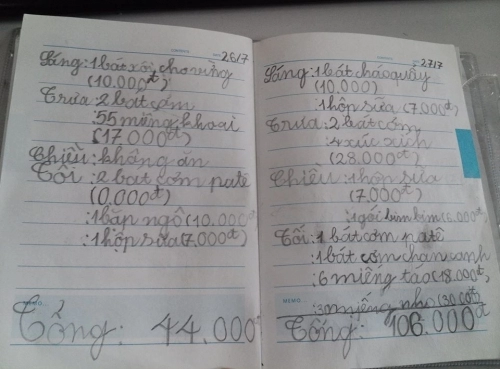 26/7
Sáng: 1 bát xôi, cho vừng
(10.000đ)
Trưa: 2 bát cơm
: 55 miếng khoai
(17.000đ)
Chiều: không ăn
Tối: 2 bat cơm patê
(0,000đ)
: 1 bắp ngô (10.000đ
: 1 hộp sữa (7.000đ)
MEMO
Tổng: 44.000đ
27/7
Sáng: 1 bát cháo quẩy
(10.000)
1 hộp sữa (7.000đ)
Trưa: 2 bát cơm
: 4 xúc xích
(28.000đ)
Chiều: 1 hộp sữa
(7.000đ
: 1 gói bim bim (6.000đ)
Tối: 1 bát cơm patê
: 1 bát cơm chan canh
: 6 miếng táo (18.000đ)
MEMO
: 3 miếng nho (30.000đ)
Tổng: 106.000đ